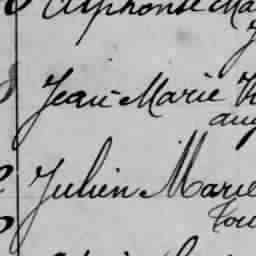 Alphonse Ma
Jean Marie
aug
Julien Marie